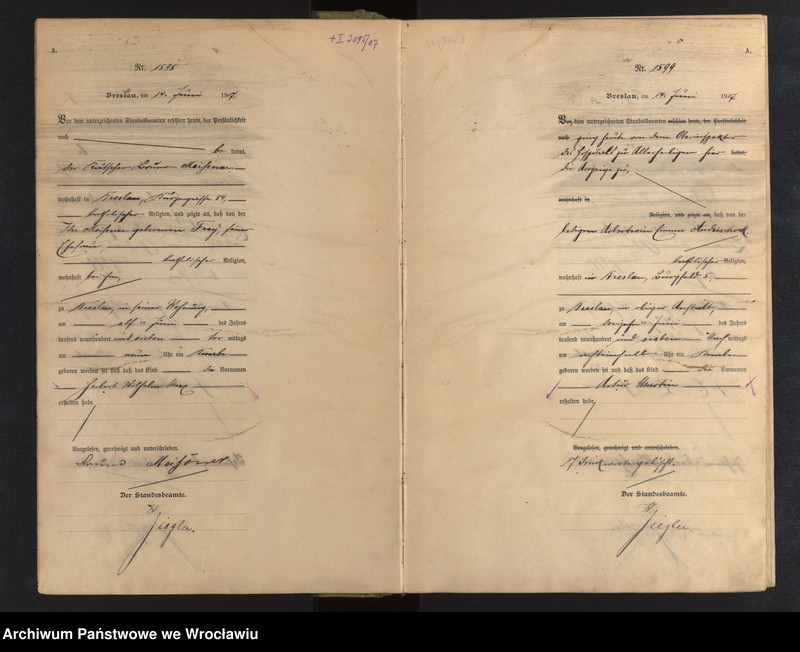 +I 3092/07
A.
Nr. 1598
Breslau, am 14. Juni 1907.
Vor dem unterzeichneten Standesbeamten erschien heute, der Persönlichkeit
nach
be kannt,
der Kutscher Bruno
wohnhaft in Breslau,
katholischer Religion, und zeigte an, daß von der
Ida geborenen seiner
Ehefrau,
katholischer Religion,
wohnhaft bei ihm,
zu Breslau, in seiner Wohnung,
am elften Juni des Jahres
tausend neunhundert und sieben Vor mittags
um neun Uhr ein Knabe
geboren worden sei und daß das Kind die Vornamen
Wilhelm Max
erhalten habe.
Vorgelesen, genehmigt und unterschrieben.
Bruno
Der Standesbeamte.
Ziegler.
A.
Nr. 1599
Breslau, am 14. Juni 1907.
Vor dem unterzeichneten Standesbeamten erschien heute, der Persönlichkeit
nach ging heute von dem Oberinspektor
des Hospitals zu Allerheiligen hier kannt,
die Anzeige ein,
wohnhaft in
Religion, und zeigte an, daß von der
ledigen Arbeiterin Emma
katholischer Religion,
wohnhaft in Breslau, Burgfeld 5,
zu Breslau, in obiger Anstalt,
am Juni des Jahres
tausend neunhundert und sieben Nach mittags
um Uhr ein Knabe
geboren worden sei und daß das Kind die Vornamen
Martin
erhalten habe.
Vorgelesen, genehmigt und unterschrieben.
17 Druckworte gelöscht.
Der Standesbeamte.
Ziegler
Archiwum Państwowe we Wrocławiu